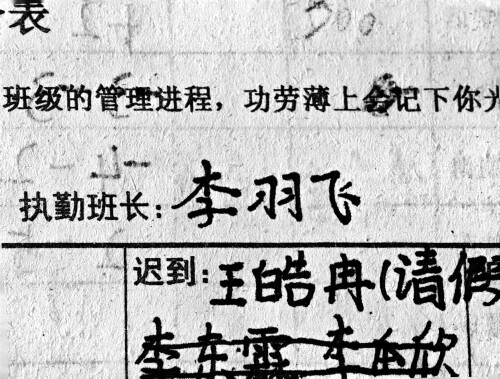 表
班级的管理进程，功劳薄上会记下你光
执勤班长：李羽飞
迟到：王皓冉(请假
李东霖 李